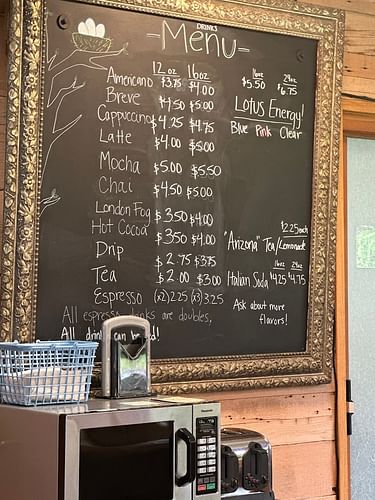 DRINKS
-Menu-
12oz 16oz
Americano $3.75 $4.00
Breve $4.50 $5.00
Cappuccino $4.25 $4.75
Latte $4.00 $5.00
Mocha $5.00 $5.50
Chai $4.50 $5.00
London Fog $3.50 $4.00
Hot Cocoa $3.50 $4.00
Drip $2.75 $3.75
Tea $2.00 $3.00
Espresso (x2) 2.25 (x3) 3.25
All espresso drinks are doubles.
All drinks can be
16oz 24oz
$5.50 $6.75
Lotus Energy!
Blue Pink Clear
$2.25 each
"Arizona" Tea/Lemonade
16oz 24oz
Italian Soda $4.25 $4.75
Ask about more
flavors!
Panasonic